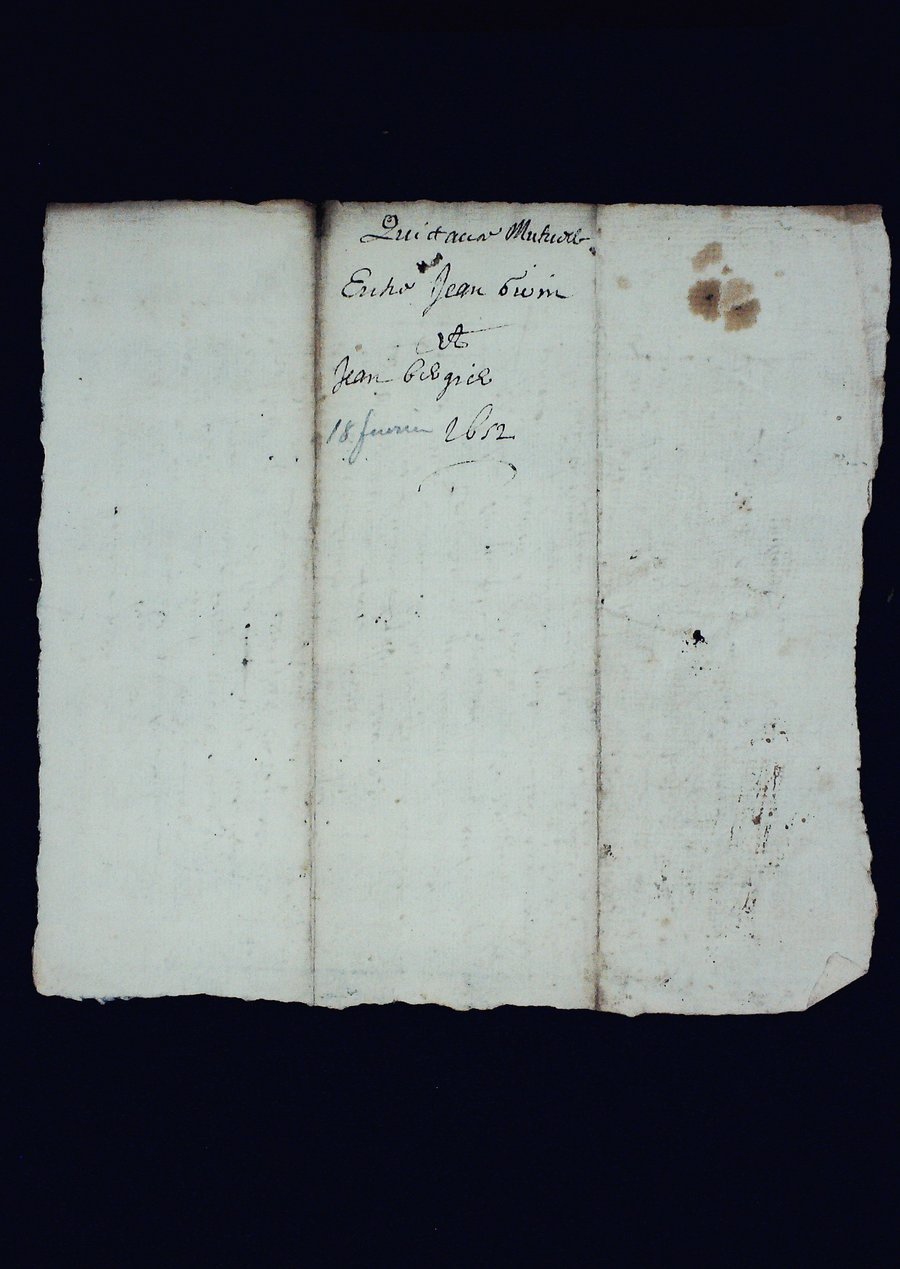 Quictance Mutuele
Entre Jean
et
Jean
18 fevrier 1652